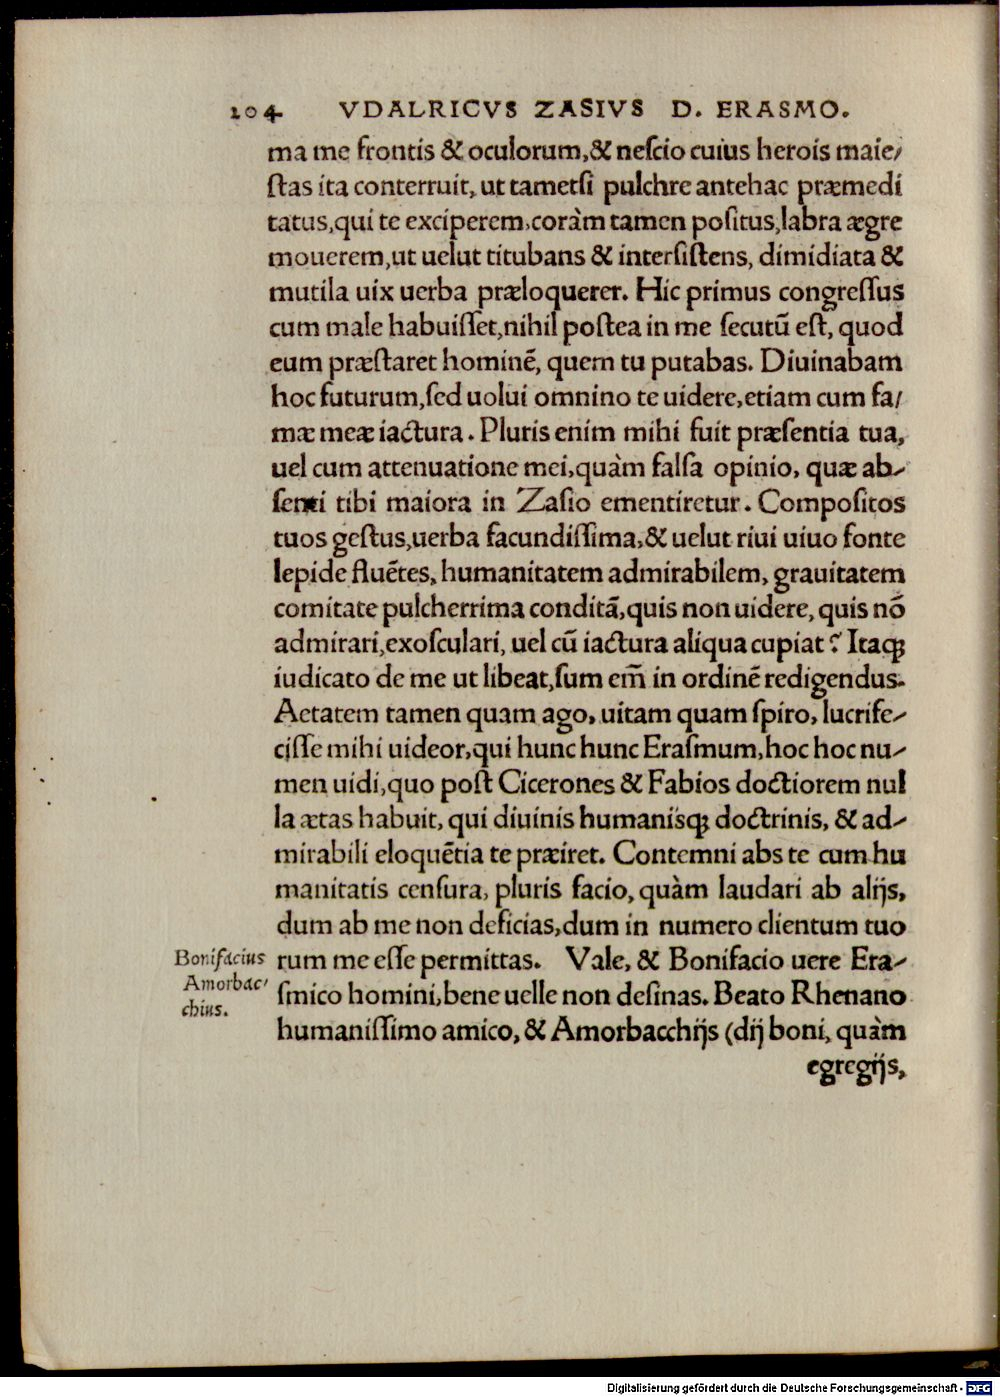 104 VDALRICVS ZASIVS D. ERASMO.
ma me frontis & oculorum,& neſcio cuius herois maie/
ſtas ita conterruit, ut tametſi pulchre antehac præmedi
tatus,qui te exciperem,coràm tamen poſitus,labra ægre
mouerem,ut uelut titubans & interſiſtens, dimidiata &
mutila uix uerba præloquerer. Hic primus congreſſus
cum male habuiſſet,nihil poſtea in me ſecutū eſt, quod
eum præſtaret hominē, quem tu putabas. Diuinabam
hoc futurum,ſed uolui omnino te uidere,etiam cum fa/
mæ meæ iactura. Pluris enim mihi fuit præſentia tua,
uel cum attenuatione mei,quàm falſa opinio, quæ ab/
ſenti tibi maiora in Zaſio ementiretur. Compoſitos
tuos geſtus,uerba facundiſſima,& uelut riui uiuo fonte
lepide fluētes, humanitatem admirabilem, grauitatem
comitate pulcherrima conditā,quis non uidere, quis nō
admirari,exoſculari, uel cū iactura aliqua cupiat? Itaq;
iudicato de me ut libeat,ſum em̄ in ordinē redigendus.
Aetatem tamen quam ago, uitam quam ſpiro, lucrife/
ciſſe mihi uideor,qui hunc hunc Eraſmum,hoc hoc nu/
men uidi,quo poſt Cicerones & Fabios doctiorem nul
la ætas habuit, qui diuinis humanisq; doctrinis, & ad/
mirabili eloquētia te præiret. Contemni abs te cum hu
manitatis cenſura, pluris facio, quàm laudari ab alijs,
dum ab me non deficias,dum in numero clientum tuo
rum me eſſe permittas. Vale, & Bonifacio uere Era/
ſmico homini,bene uelle non deſinas. Beato Rhenano
humaniſſimo amico, & Amorbacchijs (dij boni, quàm
egregijs,
Bonifacius
Amorbac/
chius.
Digitalisierung gefördert durch die Deutsche Forschungsgemeinschaft - DFG